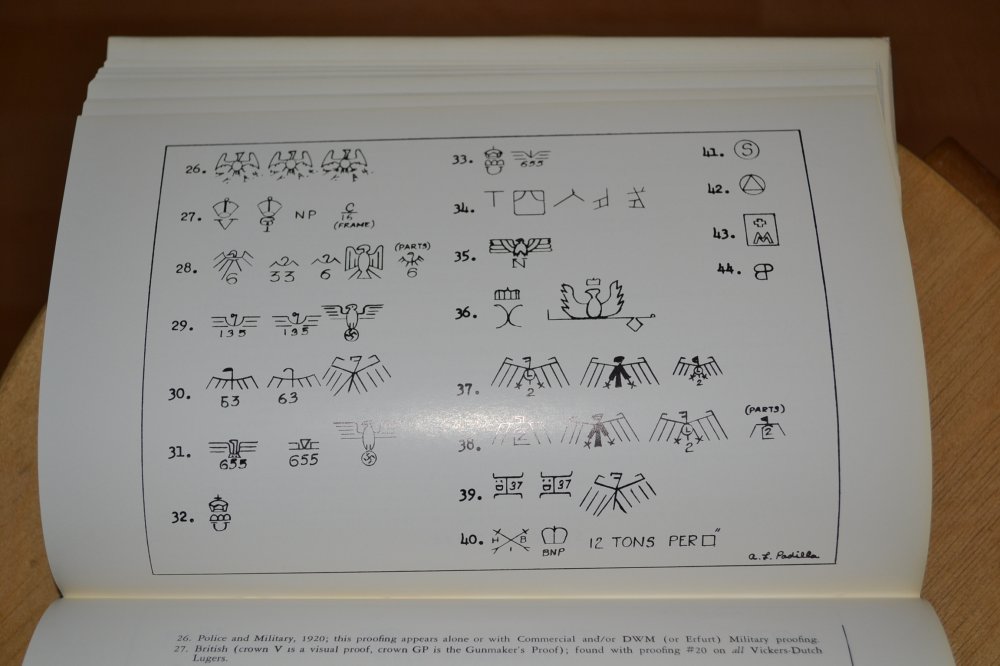 26.
27. NP C 15 (FRAME)
28. 6 33 6 (PARTS) 6
29. 135 135
30. 63 63
31. 655 655
32.
33. 655
34.
35. N
36.
37. L 2 2
38. 2 L 2 (PARTS) 2
39. 37 37
40. H B I BNP 12 TONS PER □"
41. S
42.
43.
44.
A. L. Padilla
26. Police and Military, 1920; this proofing appears alone or with Commercial and/or DWM (or Erfurt) Military proofing.
27. British (crown V is a visual proof, crown GP is the Gunmaker's Proof); found with proofing #20 on all Vickers-Dutch
Lugers.